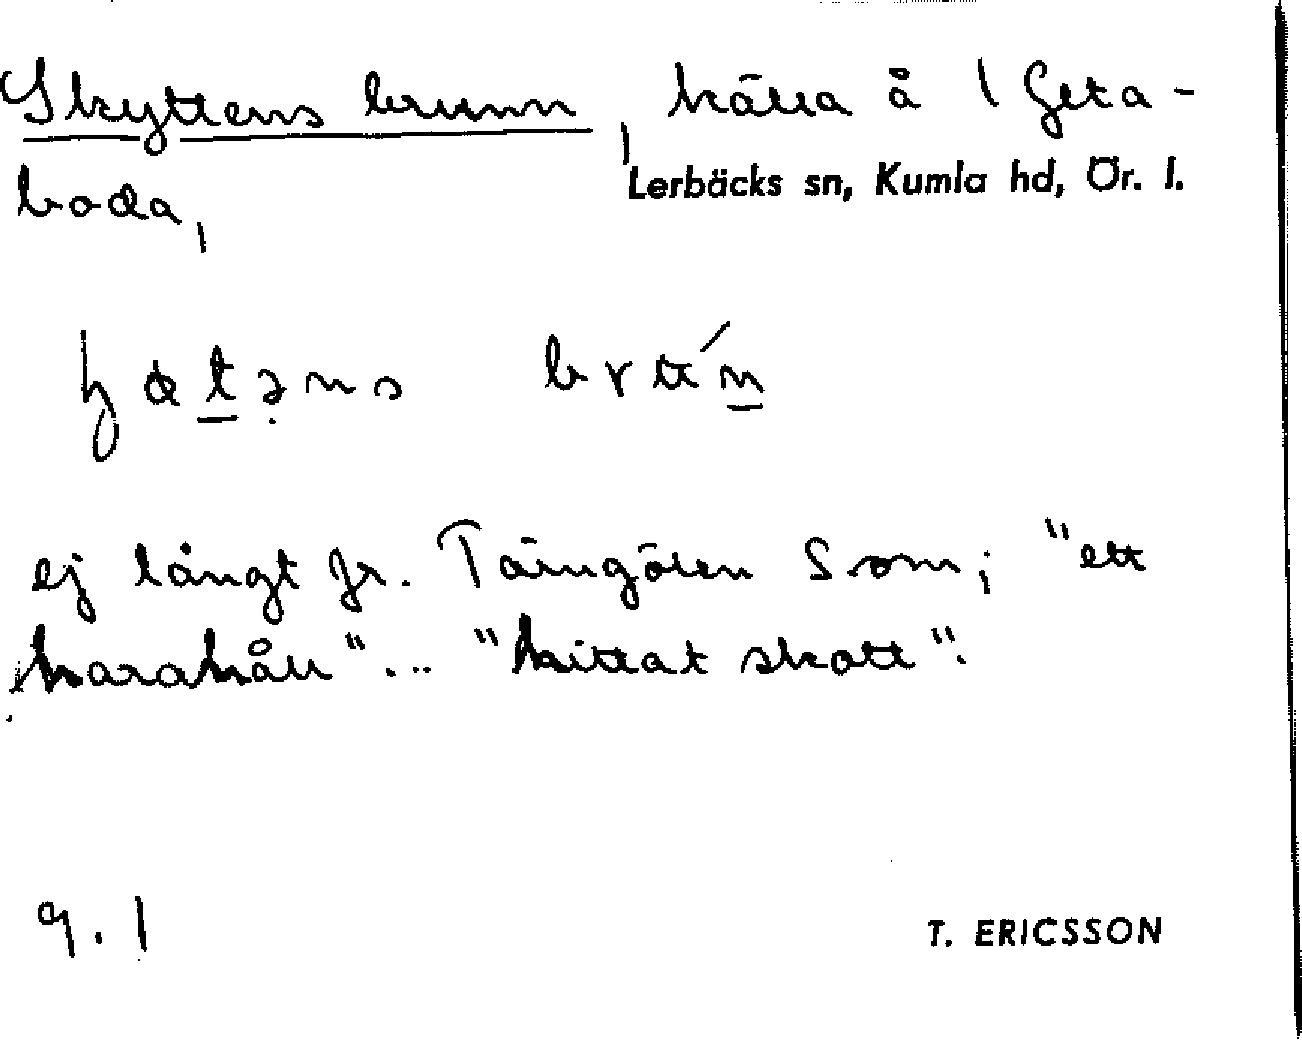 Skyttens brunn, källa å 1 Geta-
boda, Lerbäcks sn, Kumla hd, Ör. l.
ej långt fr. Tärngölen S om; "ett
karahåll"... "hittat skatt".
9.1
T. ERICSSON